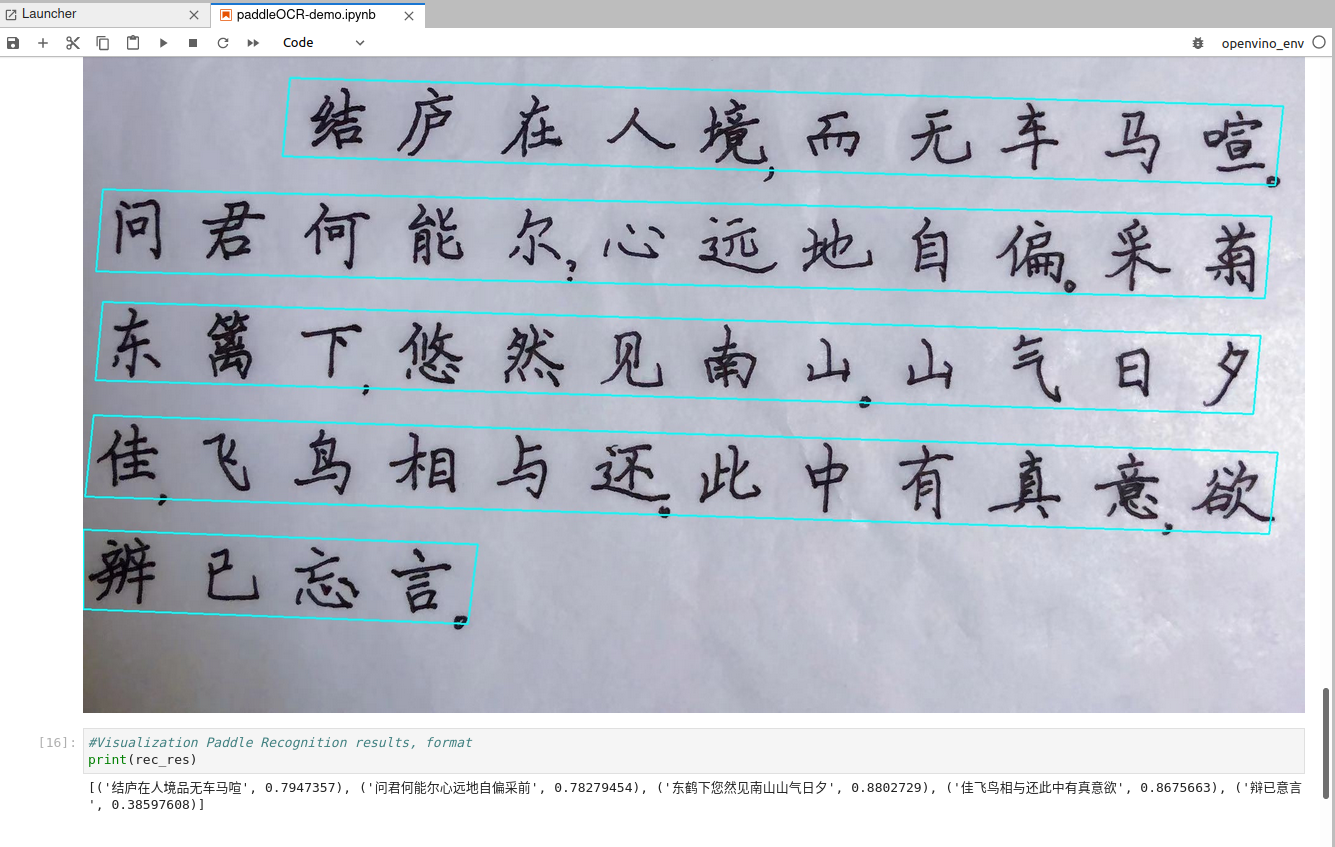 Launcher
paddleOCR-demo.ipynb
Code
openvino_env
结庐在人境,而无车马喧。
问君何能尔?心远地自偏。采菊
东篱下,悠然见南山。山气日夕
佳,飞鸟相与还。此中有真意,欲
辨已忘言。
[16]:
#Visualization Paddle Recognition results, format
print(rec_res)
[('结庐在人境品无车马喧', 0.7947357), ('问君何能尔心远地自偏采前', 0.78279454), ('东鹤下您然见南山山气日夕', 0.8802729), ('佳飞鸟相与还此中有真意欲', 0.8675663), ('辩已意言
', 0.38597608)]